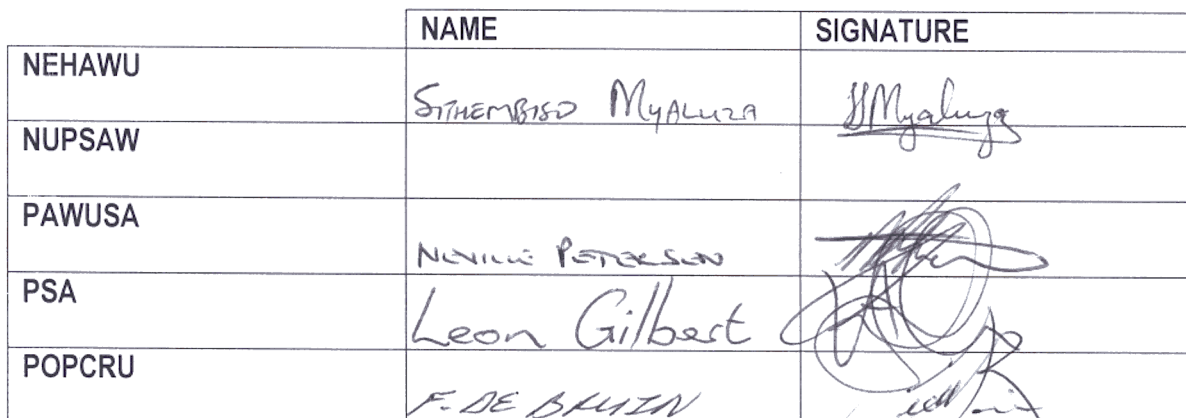 NAME SIGNATURE
NEHAWU
SITHEMBISO MYALUZA SMyaluza
NUPSAW
PAWUSA
NEVILLE PETERSEN
PSA
Leon Gilbert
POPCRU
F. DE BRUIN